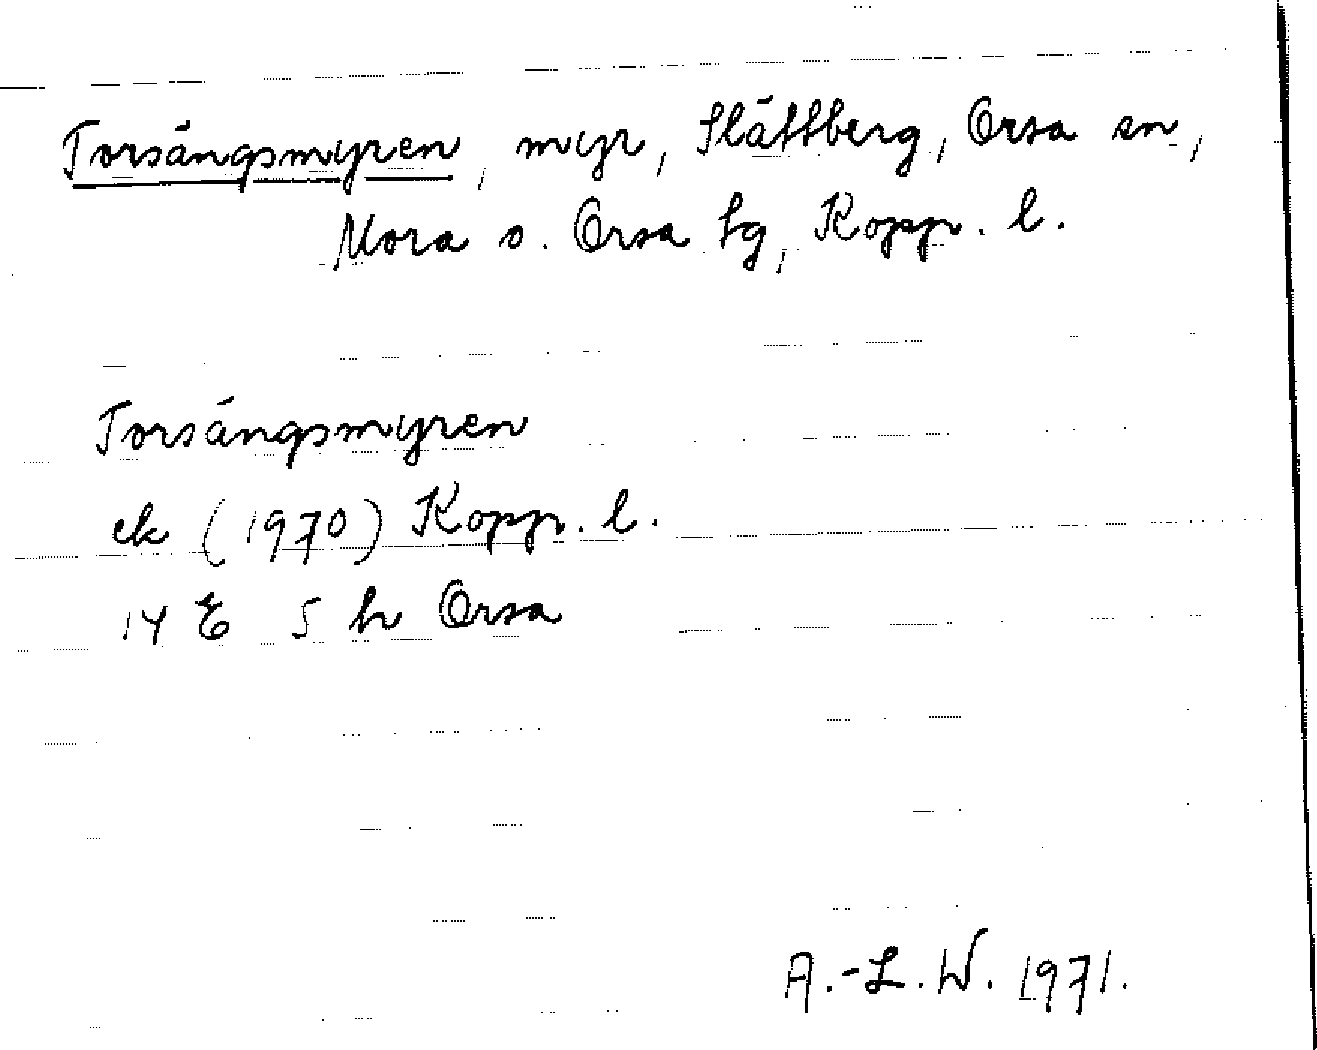 Torsängsmyren, myr, Slättberg, Orsa sn,
Mora o. Orsa tg, Kopp. l.
Torsängsmyren
ek (1970) Kopp. l.
14 E 5 h Orsa
A.-L. W. 1971.